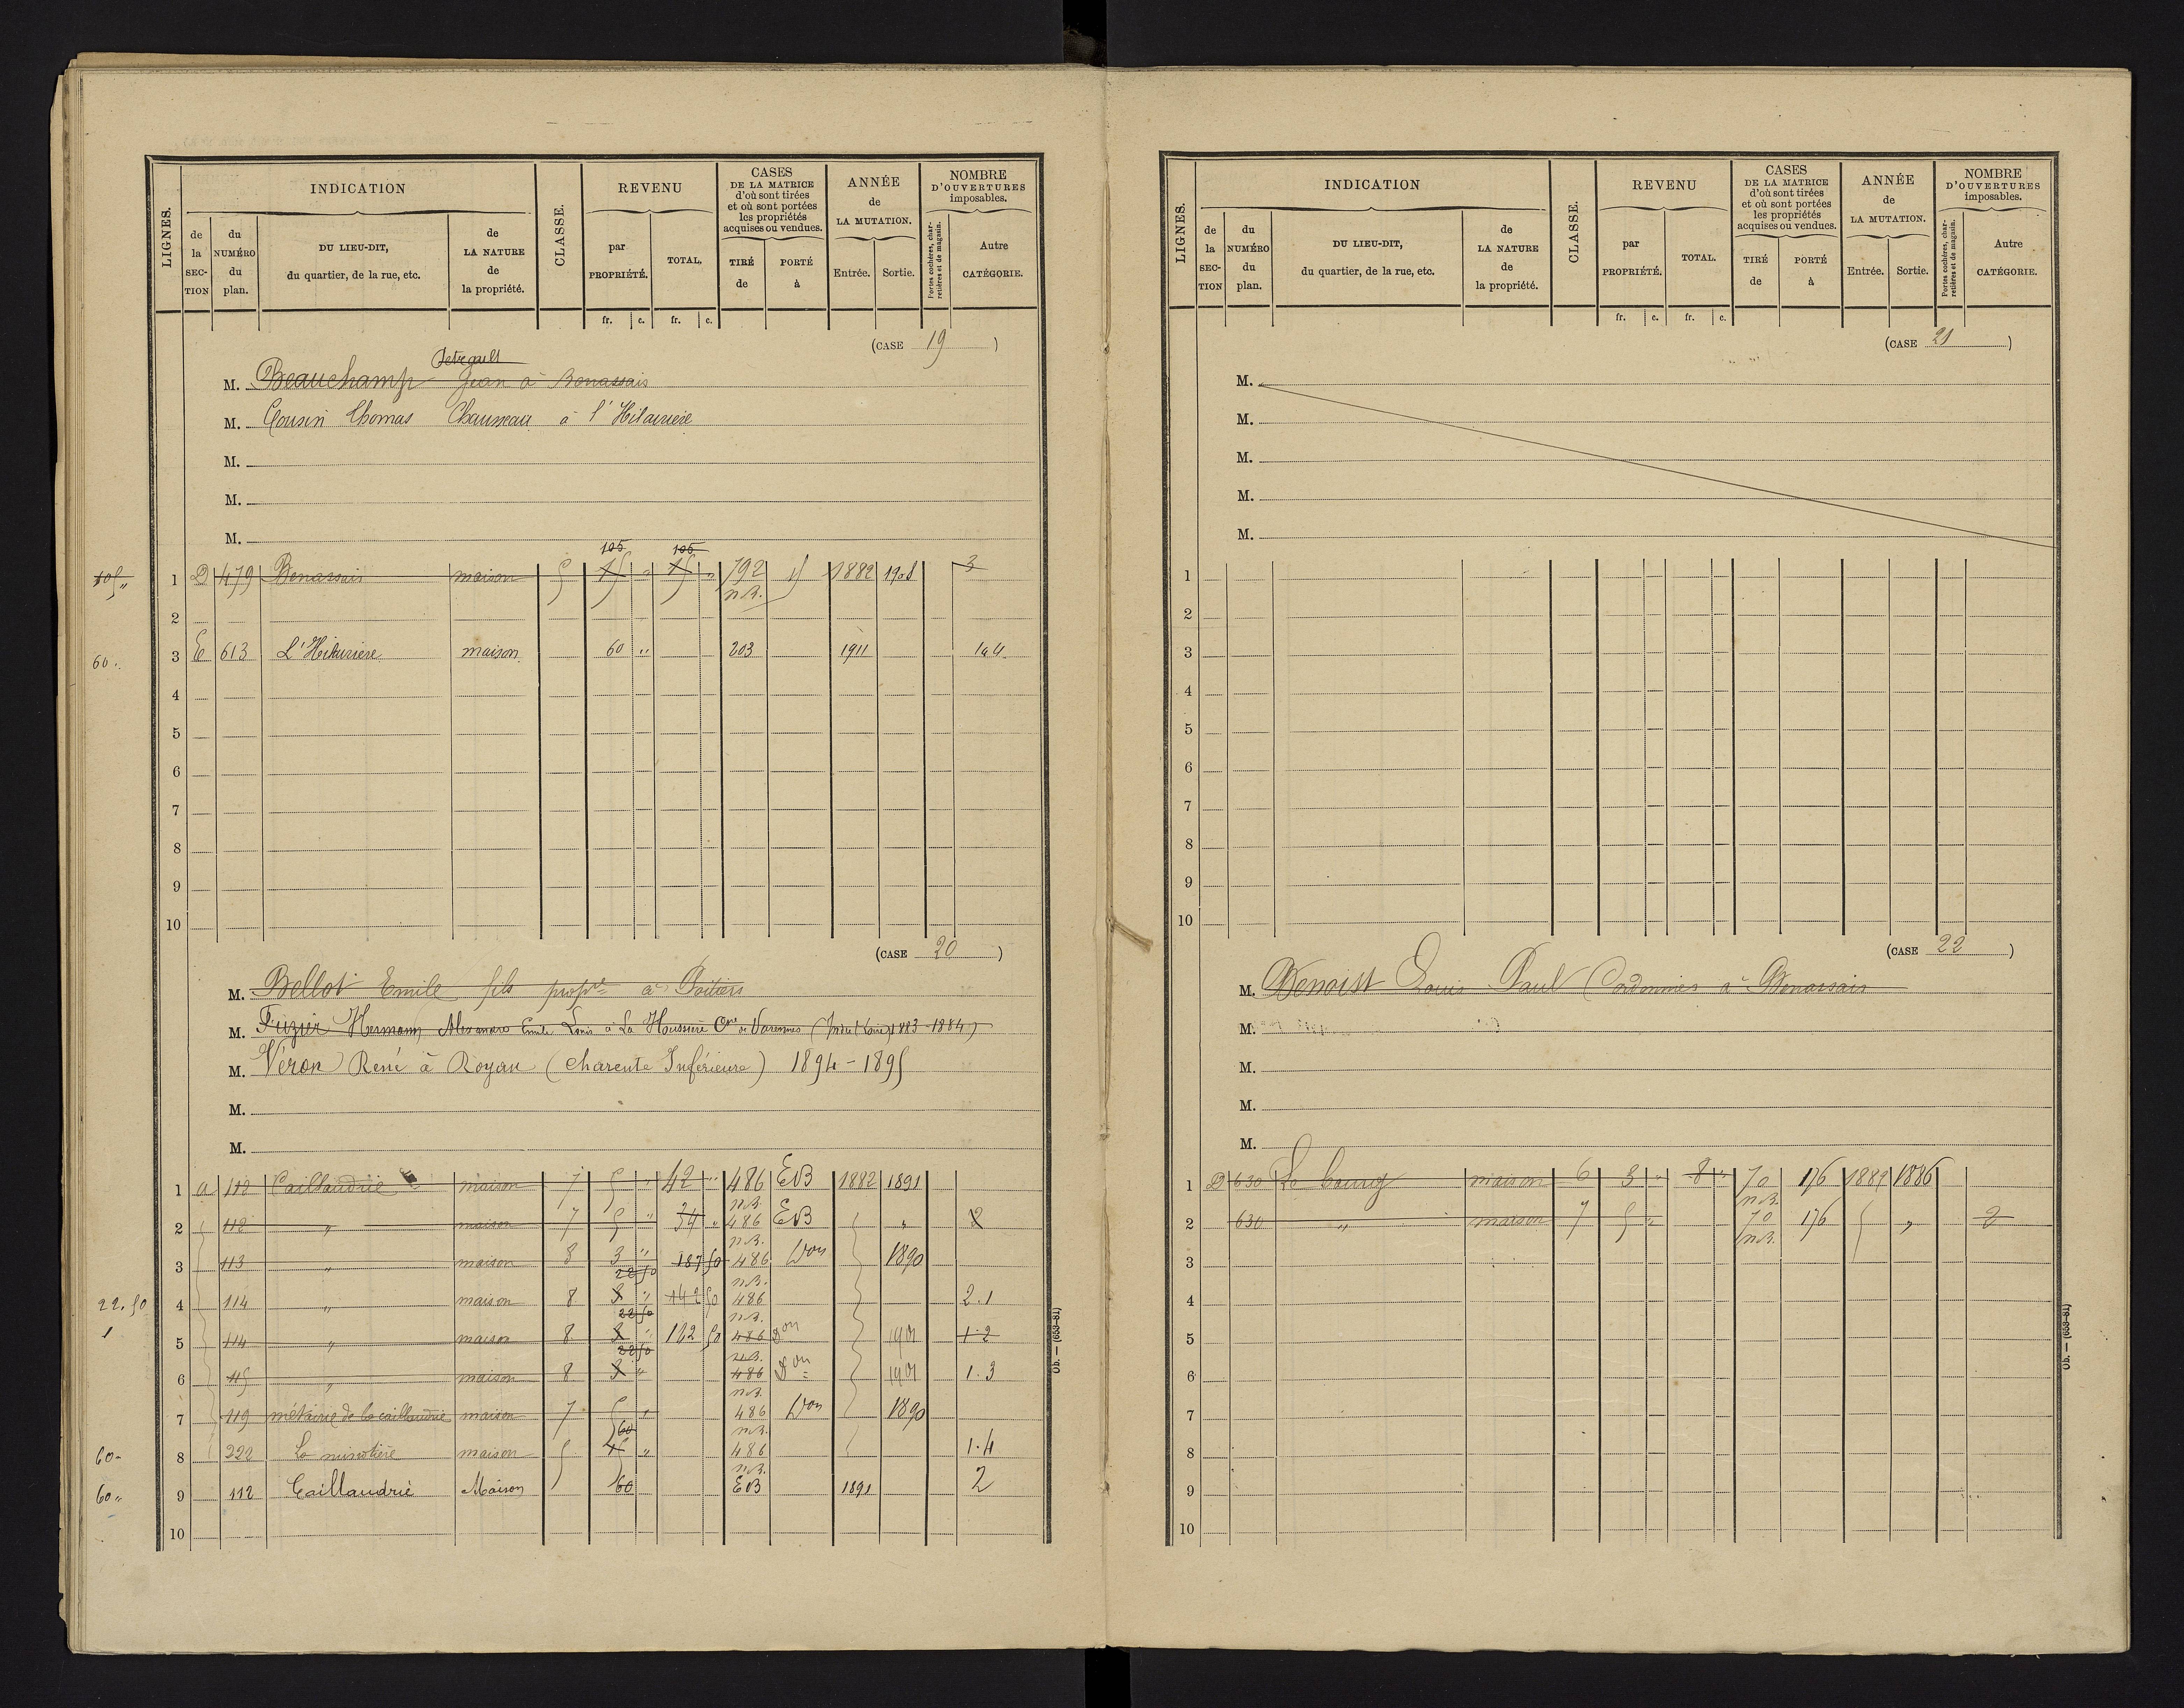 LIGNES.
INDICATION
de la SECTION
du NUMÉRO du plan.
DU LIEU-DIT, du quartier, de la rue, etc.
de LA NATURE de la propriété.
CLASSE.
REVENU
par PROPRIÉTÉ.
TOTAL.
CASES DE LA MATRICE d'où sont tirées et où sont portées les propriétés acquises ou vendues.
TIRÉ de
PORTÉ à
ANNÉE de LA MUTATION.
Entrée.
Sortie.
NOMBRE D'OUVERTURES imposables.
Portes cochères, charretières et de magasin.
Autre CATÉGORIE.
fr. c. fr. c.
(CASE 19)
M. Beauchamp Jean à Benassais
M. Cousin Thomas à l'Hilairière
M.
M.
M.
105 105
1 D 479 Benassais maison 5 15 " 15 " 792 1882 1908 3
n.B.
2
60 3 E 613 L'Hilairière maison 60 " 203 1911 1 à 4
4
5
6
7
8
9
10
(CASE 20)
M. Bellot Emile fils propre à Poitiers
M. Fuzier Hermann Alexandre Emile Louis à La Houssière Cne de Varennes (Indre & Loire) 1883-1884
M. Véron René à Royan (Charente Inférieure) 1894-1895
M.
M.
1 a 112 Caillaudrie maison 7 5 " 42 " 486 EB 1882 1891
n.B.
2 112 " maison 7 5 " 34 " 486 EB " 2
n.B.
3 113 " maison 8 3 " 187 50 486 Don 1890
22 50 n.B.
22.50 4 114 " maison 8 3 " 142 50 486 2.1
22 50 n.B.
1 5 114 " maison 8 3 " 162 50 486 Don 1901 1.2
22 50 n.B.
6 115 " maison 8 3 " 486 Don 1901 1.3
n.B.
7 119 métairie de la caillaudrie maison 7 5 " 486 Don 1890
60 n.B.
60 8 222 La minotière maison 5 15 " 486 1.4
n.B.
60 " 9 112 Caillaudrie Maison 60 EB 1891 2
10
Ob. — (653-81)
LIGNES.
INDICATION
de la SECTION
du NUMÉRO du plan.
DU LIEU-DIT, du quartier, de la rue, etc.
de LA NATURE de la propriété.
CLASSE.
REVENU
par PROPRIÉTÉ.
TOTAL.
CASES DE LA MATRICE d'où sont tirées et où sont portées les propriétés acquises ou vendues.
TIRÉ de
PORTÉ à
ANNÉE de LA MUTATION.
Entrée.
Sortie.
NOMBRE D'OUVERTURES imposables.
Portes cochères, charretières et de magasin.
Autre CATÉGORIE.
fr. c. fr. c.
(CASE 21)
M.
M.
M.
M.
M.
1
2
3
4
5
6
7
8
9
10
(CASE 22)
M. Benoist Louis Paul Cordonnier à Benassais
M.
M.
M.
M.
1 D 630 Le bourg maison 6 3 " 8 " 70 176 1882 1886
n.B.
2 630 " maison 7 5 " 70 176 " 2
n.B.
3
4
5
6
7
8
9
10
Ob. — (653-81)